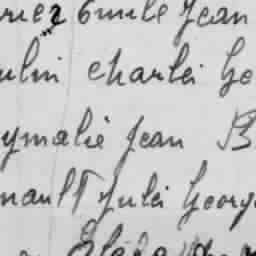 riez Emile Jean
ulin Charles Ge
ymalie Jean B
nault Jules George